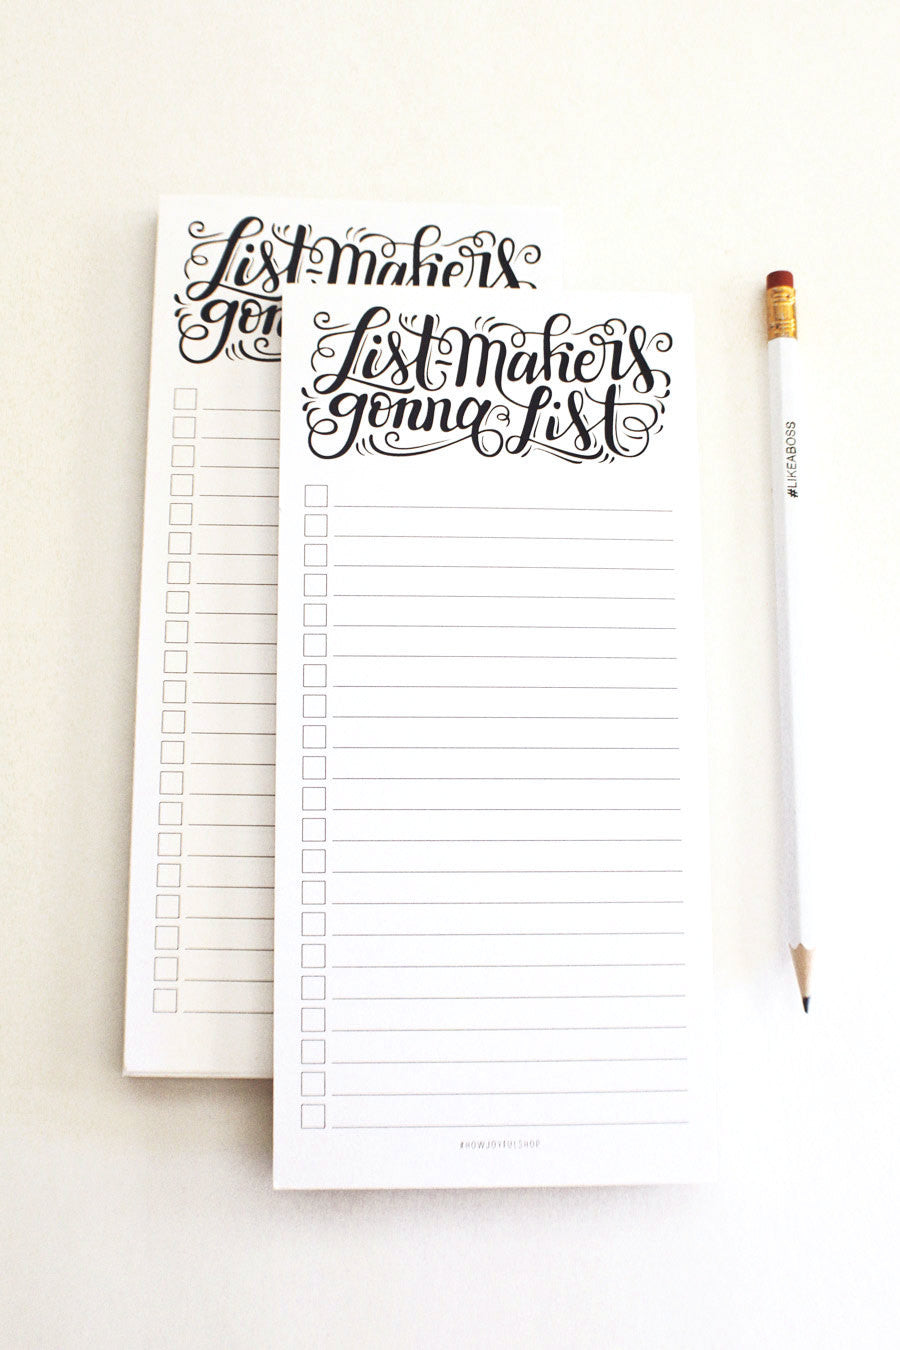 List-makers
gon
List-makers
gonna List
#HOWJOYFULSHOP
#LIKEABOSS